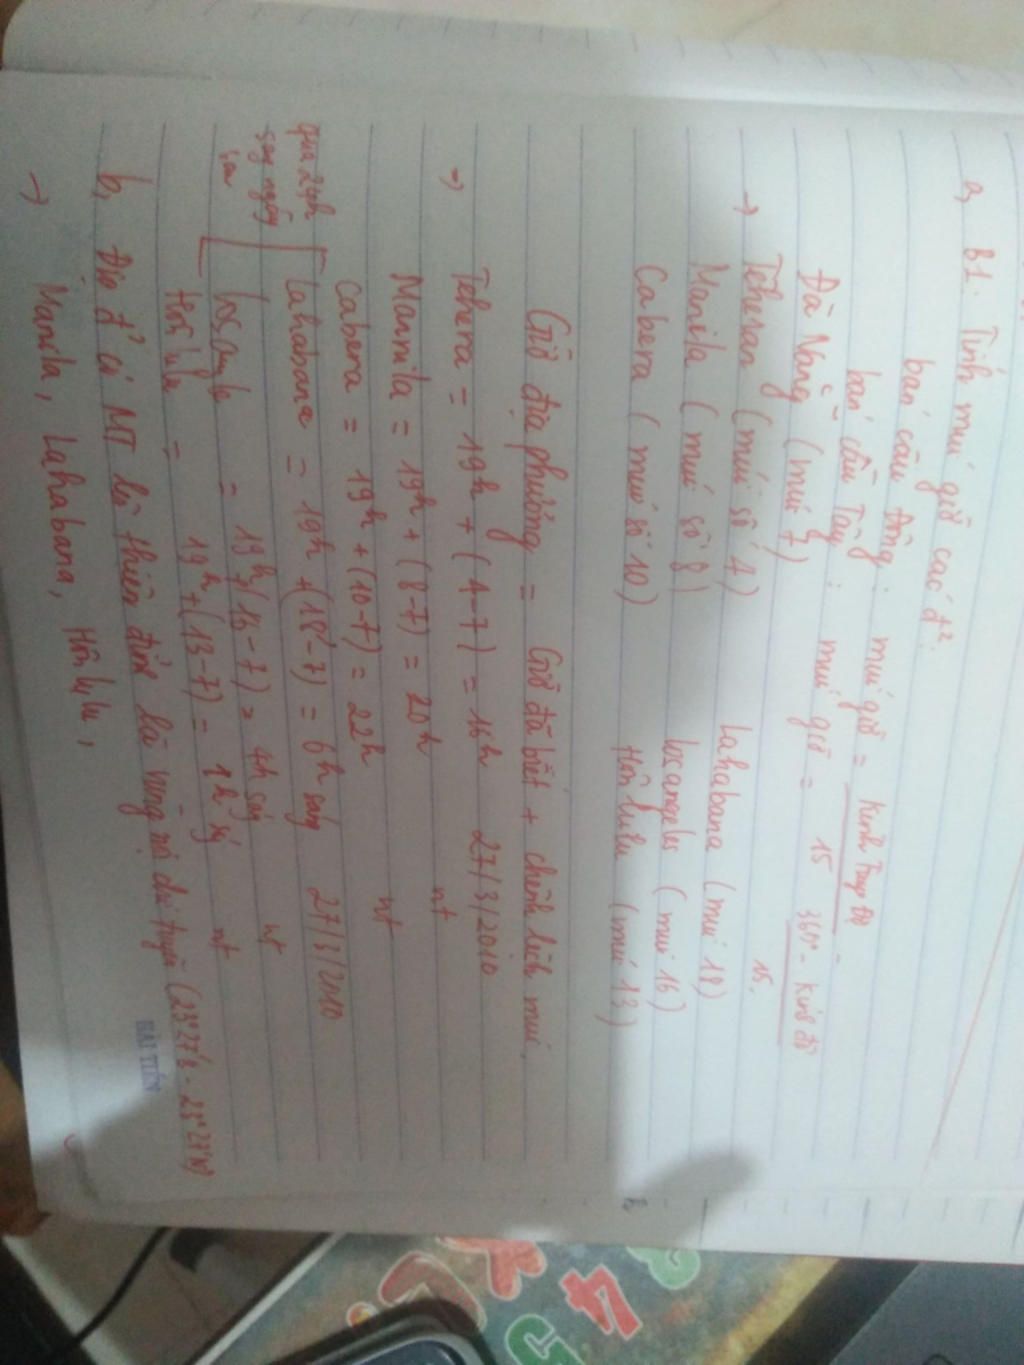 a, B1. Tính múi giờ các đ²:
bán cầu Đông: múi giờ = Kinh Tuyến Độ
15
bán cầu Tây: múi giờ = 360° - Kinh độ
15.
Đà Nẵng (múi 7)
→ Teheran (múi số 4) Lahabana (múi 18)
Manila (múi số 8) Losangeles (múi 16)
Cabera (múi số 10) Hônlulu (múi 13)
Giờ địa phương = Giờ đã biết + chênh lệch múi.
→ Tehera = 19h + (4-7) = 16h 27/3/2010
Mannila = 19h + (8-7) = 20h nt
Cabera = 19h + (10-7) = 22h nt
qua 24h sang ngày sau
Lahabane = 19h + (18-7) = 6h sáng 27/3/2010
= 19h (16-7) = 4h sáng nt
Hôn lulu = 19h + (13-7) = 1h nt
b, Địa đ² có MT lên thiên đỉnh là vùng nội chí tuyến (23°27'B - 23°27'N)
→ Manila, Lahabana, Hônlulu,
HẢI TIẾN